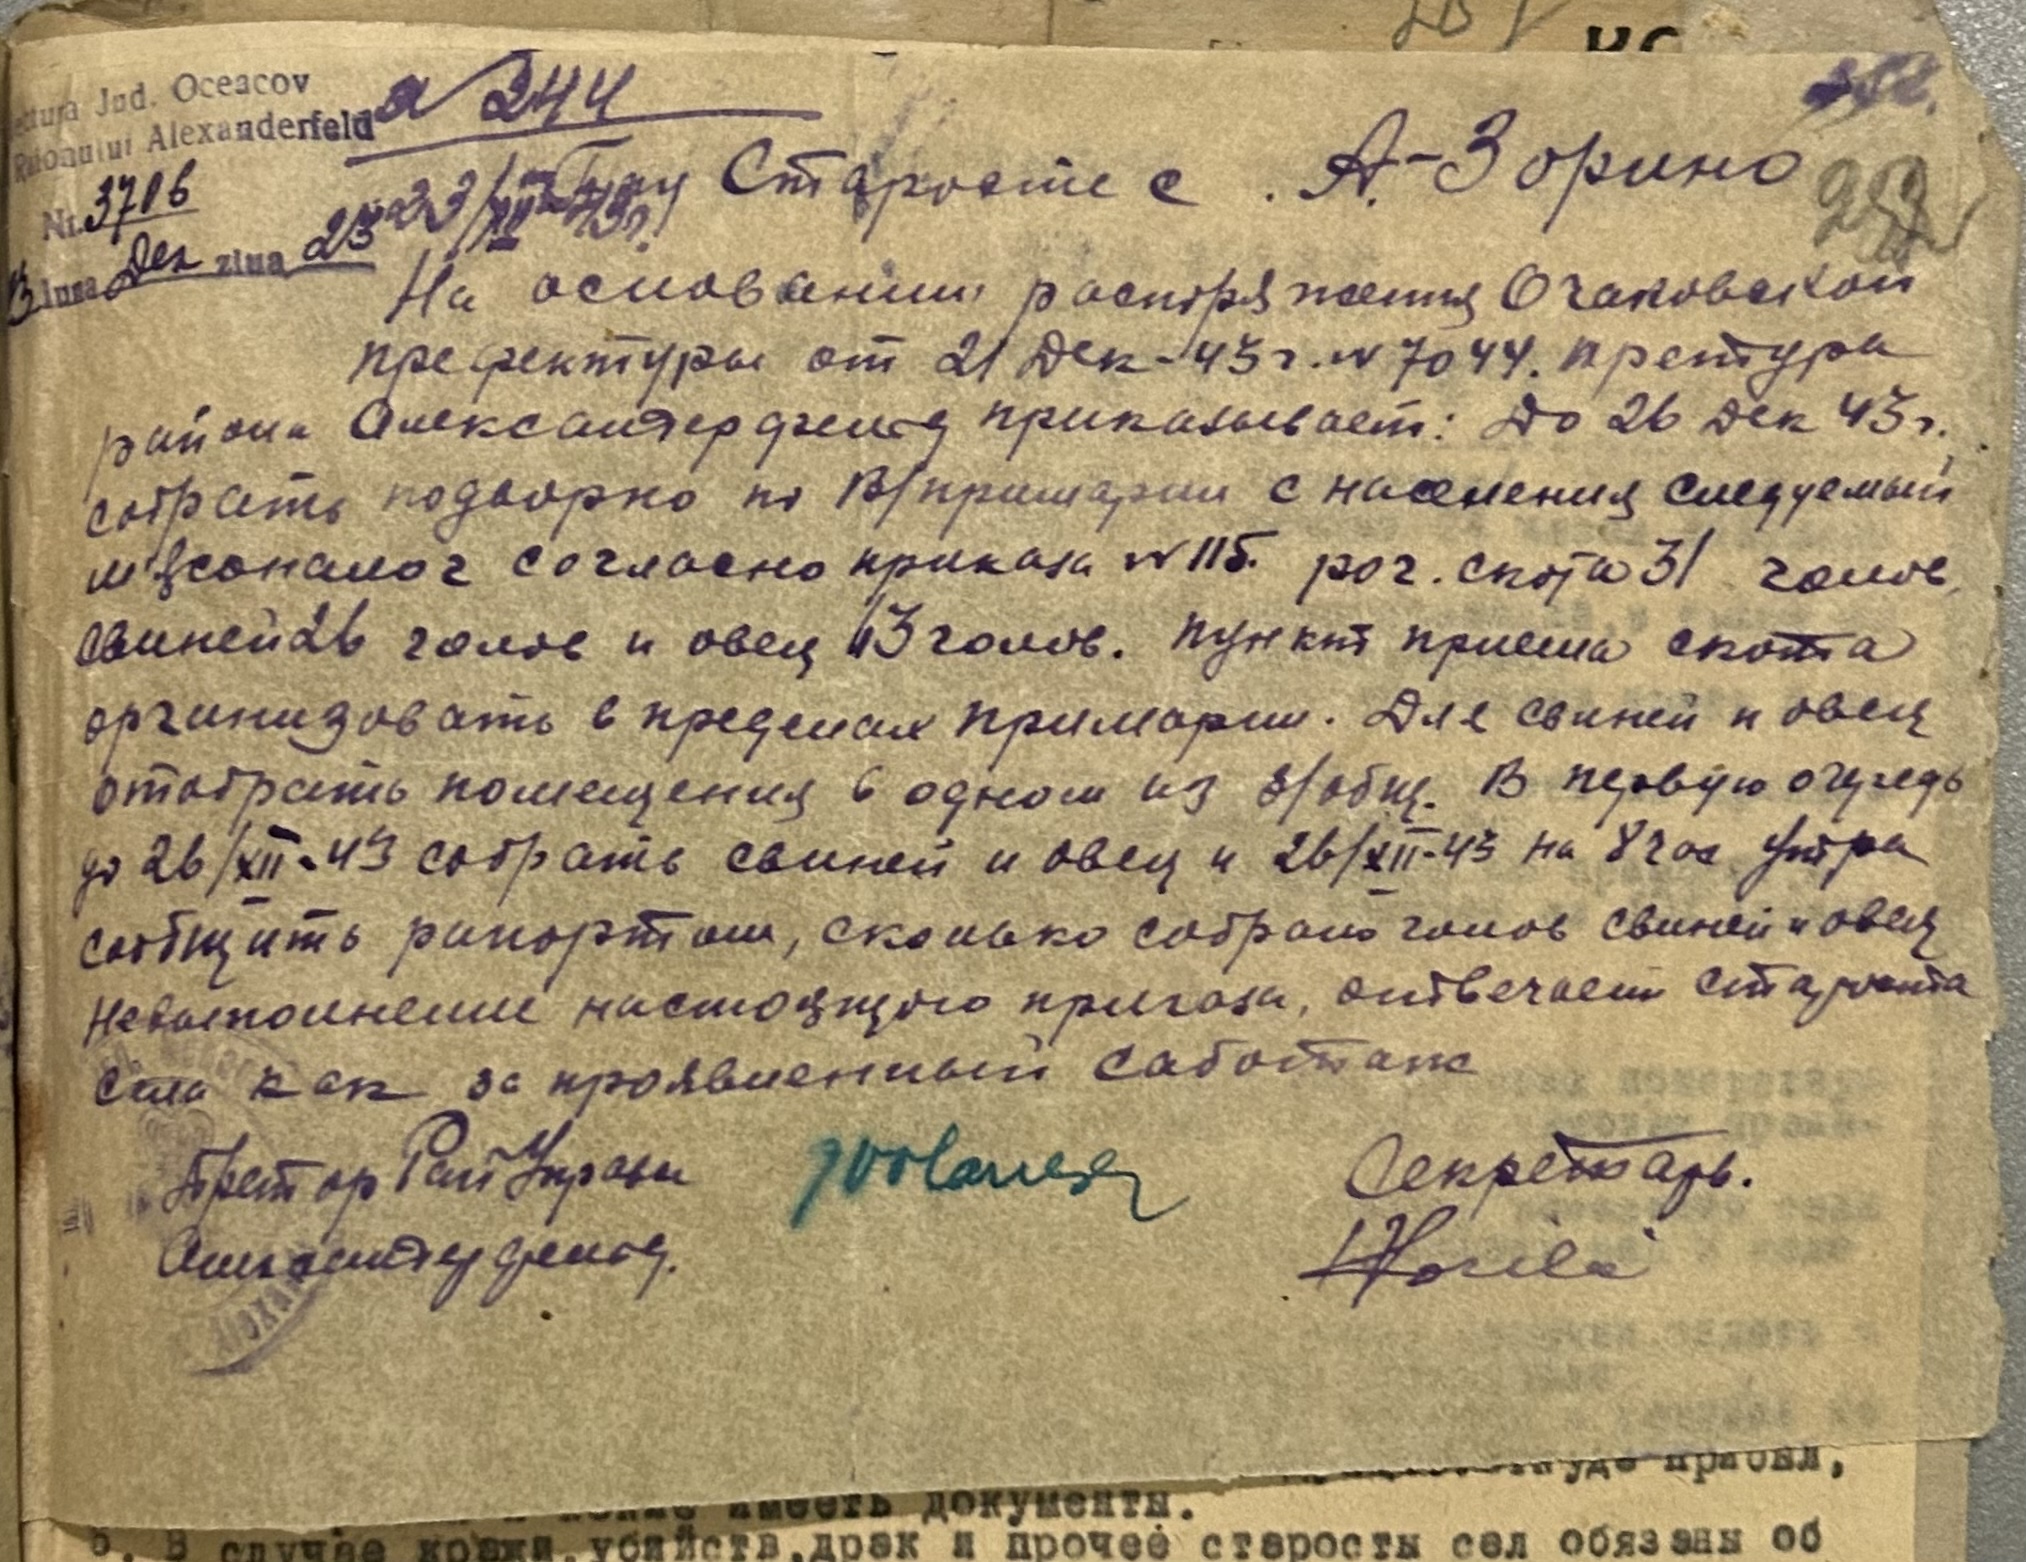 ectura Jud. Oceacov
Raionului Alexanderfeld
№ 244
Nr. 3706
luna Дек ziua 23
23/XII-43г.
Старосте с. А.-Зорино
252
На основании распряжения Очаковской
префектуры от 21 Дек-43 г. № 7044. претура
района Александерфельд приказывает: До 26 Дек 43 г.
собрать подворно по В/примарии с населения следуемый
мясоналог согласно приказа № 115. рог. скота 31 голов,
свиней 26 голов и овец 13 голов. Пункт приема скота
организовать в пределах примарии. Для свиней и овец
отобрать помещения в одном из з/общ. В первую очередь
до 26/XII-43 собрать свиней и овец и 26/XII-43 на 8 час утра
сообщить рапортом, сколько собрано голов свиней и овец
Невыполнение настоящого приказа, отвечает староста
села как за проявленный саботаж
Претор РайУправы
Секретарь.
Александерфельд.
имееть документы.
6. В случае кражи, убийств, драк и прочее старосты сел обязаны об